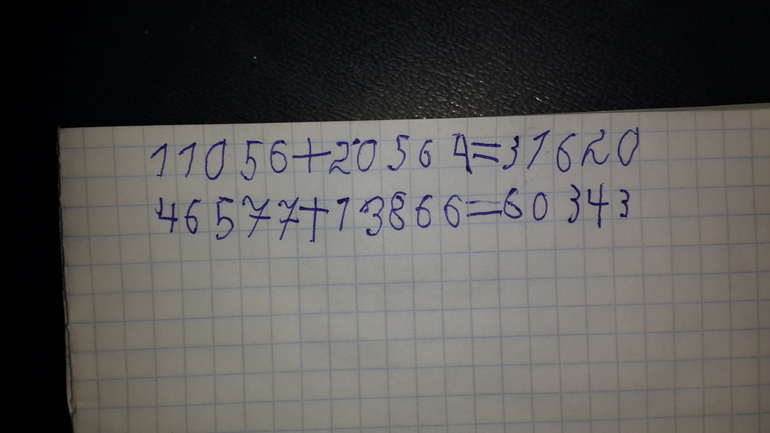 11056+20564=31620
46577+13866=60343